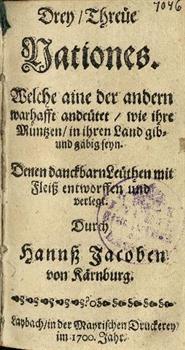 7046
Drey/Threüe
Nationes.
Welche aine der andern
warhafft andeütet / wie ihre
Müntzen/ in ihren Land gib-
und gäbig seyn.
Denen danckbarn Leüthen mit
Fleiß entworffen und
verlegt.
Durch
Hannß Jacoben
von Kärnburg.
Laybach/ in der Mayrischen Druckerey/
im 1700. Jahr.